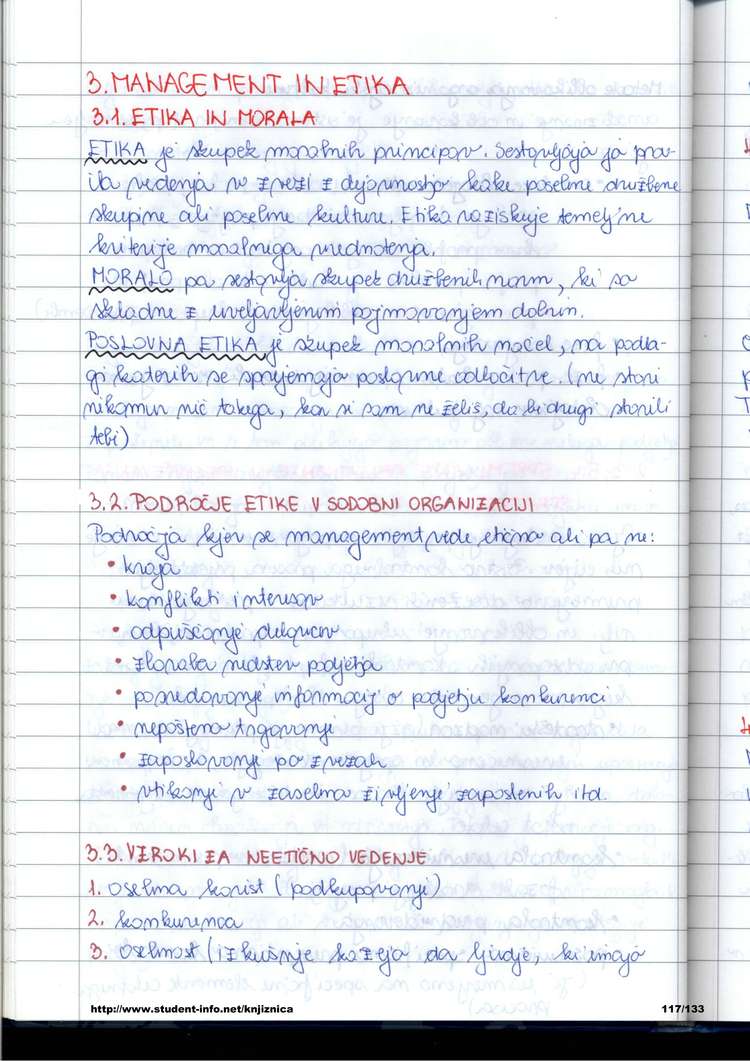 3. MANAGEMENT IN ETIKA
3.1. ETIKA IN MORALA
ETIKA je skupek moralnih principov. Sestavljajo jo pra-
vila vedenja v zvezi z dejavnostjo kake posebne družbene
skupine ali posebne kulture. Etika raziskuje temeljne
kriterije moralnega vrednotenja.
MORALO pa sestavlja skupek družbenih norm, ki so
skladne z uveljavljenim pojmovanjem dobrin.
POSLOVNA ETIKA je skupek moralnih načel, na podla-
gi katerih se sprejemajo poslovne odločitve. (ne stori
nikomur nič takega, kar si sam ne želiš, da bi drugi storili
tebi)
3.2. PODROČJE ETIKE V SODOBNI ORGANIZACIJI
Področja kjer se management vede etično ali pa ne:
• kraja
• konflikti interesov
• odpuščanje delavcev
• zloraba sredstev podjetja
• posredovanje informacij o podjetju konkurenci
• nepošteno trgovanje
• zaposlovanje po zvezah
• vtikanje v zasebno življenje zaposlenih itd.
3.3. VZROKI ZA NEETIČNO VEDENJE
1. osebna korist (podkupovanje)
2. konkurenca
3. osebnost (izkušnje kažejo da ljudje, ki imajo
http://www.student-info.net/knjiznica
117/133